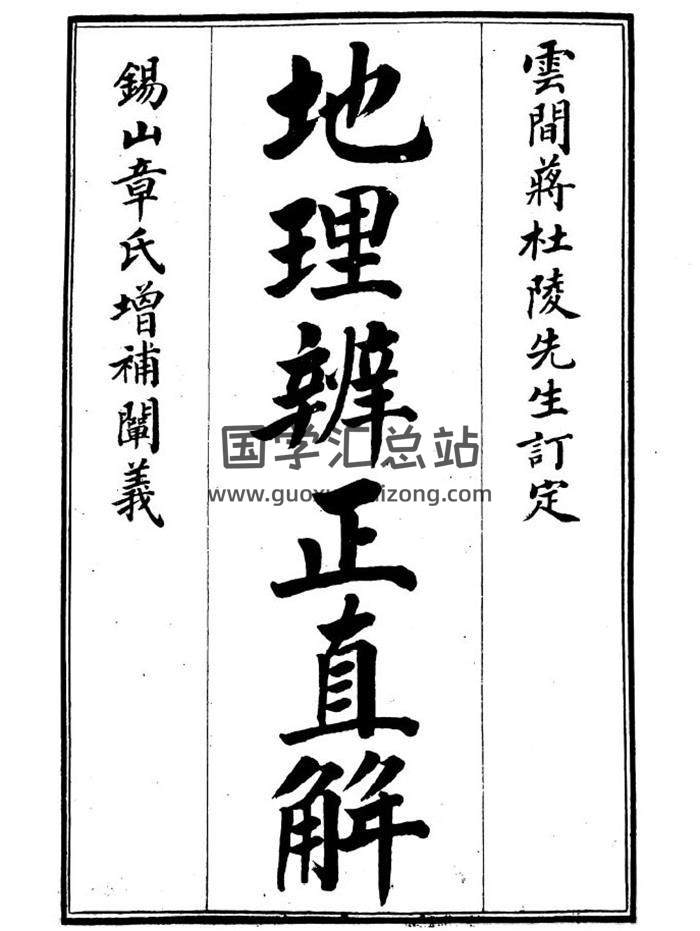 雲間蔣杜陵先生訂定
地理辨正直解
錫山章氏增補闡義
国学汇总站